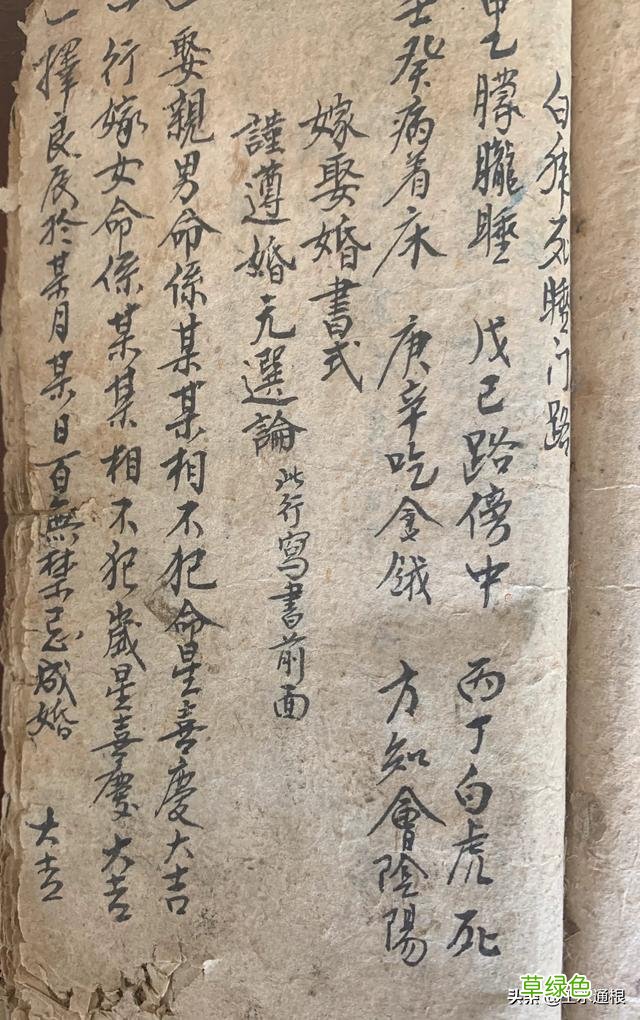 白猴死睡门路
甲乙朦朧睡 戊己路傍中 丙丁白虎死
壬癸病着床 庚辛吃含餓 方知會陰陽
嫁娶婚書式
謹遵婚元選論 此行寫書前面
一娶親男命係某某相不犯命星喜慶大吉
一行嫁女命係某某相不犯歲星喜慶大吉
一擇良辰於某月某日百無禁忌成婚 大吉
草绿色
头条 通根